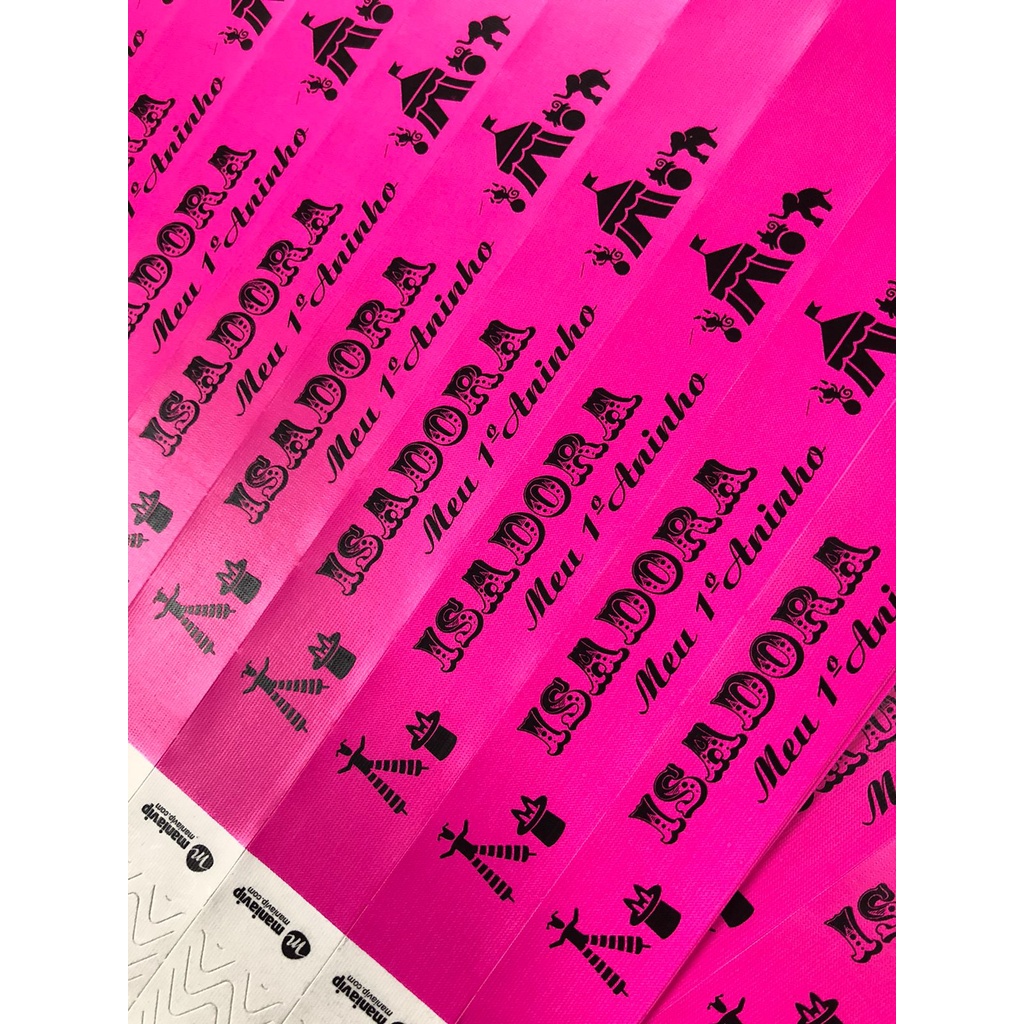 ISADORA
Meu 1º Aninho
ISADORA
Meu 1º Aninho
ISADORA
Meu 1º Aninho
ISADORA
Meu 1º Aninho
ISADORA
Meu 1º Aninho
ISADORA
Meu 1º Aninho
ISADORA
Meu 1º An
maniavip
maniavip.com
maniavip
maniavip.com
maniavip
maniavip.com